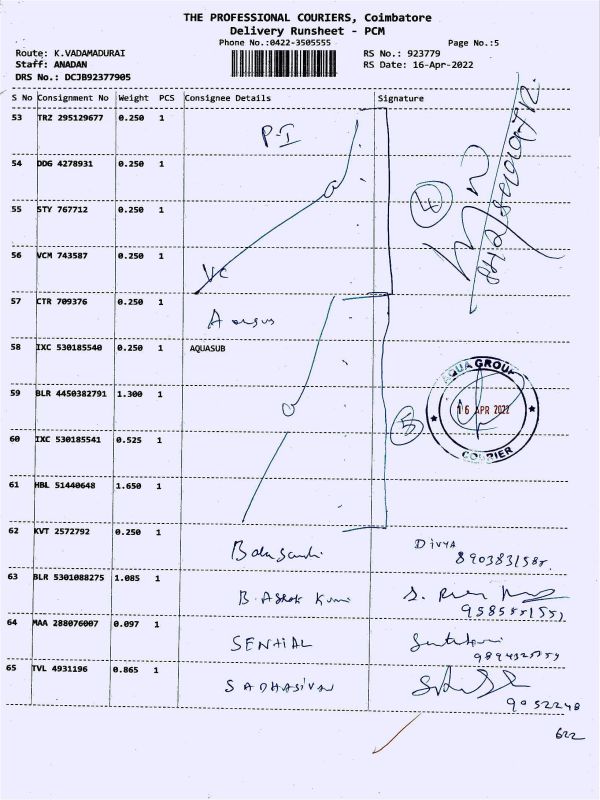 THE PROFESSIONAL COURIERS, Coimbatore
Delivery Runsheet - PCM
Phone No.:0422-3505555 Page No.:5
Route: K.VADAMADURAI RS No.: 923779
Staff: ANADAN RS Date: 16-Apr-2022
DRS No.: DCJB92377905
S No Consignment No Weight PCS Consignee Details Signature
53 TRZ 295129677 0.250 1
P-I
54 DDG 4278931 0.250 1
4
55 STY 767712 0.250 1
56 VCM 743587 0.250 1
Vc
57 CTR 709376 0.250 1
58 IXC 530185540 0.250 1 AQUASUB
AQUA GROUP
59 BLR 4450382791 1.300 1
16 APR 2022
5
60 IXC 530185541 0.525 1
COURIER
61 HBL 51440648 1.650 1
62 KVT 2572792 0.250 1
DIVYA
63 BLR 5301088275 1.085 1
B. Ashok Kumar
64 MAA 288076007 0.097 1
SENTHIL
65 TVL 4931196 0.865 1
SADHASIVAN
9052248
622